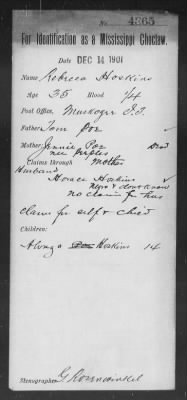 No. 4365
For Identification as a Mississippi Choctaw.
Date DEC 14 1901
Name Rebecca Hoskins
Age 35 Blood 1/4
Post Office, Muskogee I.T.
Father, Tom Poe
Mother, Jennie Poe Dead
nee Peoples
Claims through Mother
Husband
Horace Hoskins
Negro & dont know
no claim for him
claim for self & child
Children:
Hoskins 14
Stenographer G Rosenwinkel